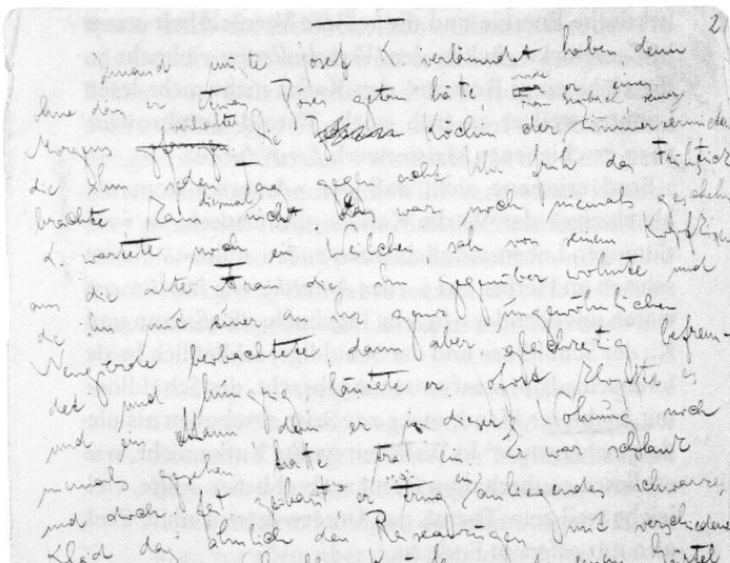 2
Jemand mußte Josef K verläumdet haben denn
ohne daß er etwas Böses getan hätte wurde er eines
Morgens verhaftet Die Köchin der Zimmervermieterin
die ihm jeden Tag gegen acht Uhr früh das Frühstück
brachte kam diesmal nicht. Das war noch niemals geschehn
K wartete noch ein Weilchen sah von seinem Kopfkissen
aus die alte Frau die ihm gegenüber wohnte und
die ihn mit einer an ihr ganz ungewöhnlichen
Neugierde beobachtete dann aber gleichzeitig befrem-
det und hungrig läutete er. Sofort klopfte es
und ein Mann den er in dieser Wohnung noch
niemals gesehen hatte trat ein. Er war schlank
und doch fest gebaut er trug ein anliegendes schwarzes
Kleid das ähnlich den Reiseanzügen mit verschiedenen
Gürtel